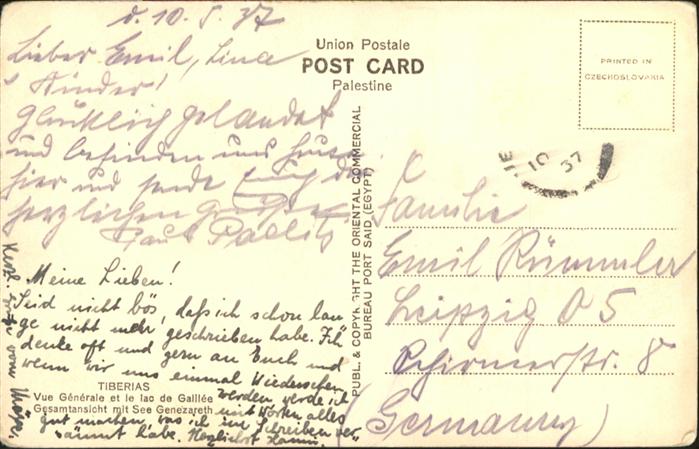 d. 10. 5. 37
Lieber Emil, Lina
u Kinder!
Glücklich gelandet
und befinden uns
hier und sende Euch die
herzlichen Grüße
Paul
Meine Lieben!
Seid nicht bös, daß ich schon lan
ge nicht mehr geschrieben habe. Ich
denke oft und gern an Euch und
wenn wir uns einmal Wiedersehen
werden, werde ich
mit Worten alles
gut machen, was ich im Schreiben ver
säumt habe. Herzlichst
TIBERIAS
Vue Générale et le lac de Galilée
Gesamtansicht mit See Genezareth
Union Postale
POST CARD
Palestine
PUBL. & COPYRIGHT THE ORIENTAL COMMERCIAL
BUREAU PORT SAID (EGYPT)
PRINTED IN
CZECHOSLOVAKIA
10 37
Familie
Emil Rümmler
Leipzig O 5
Schirmerstr. 8
(Germany)